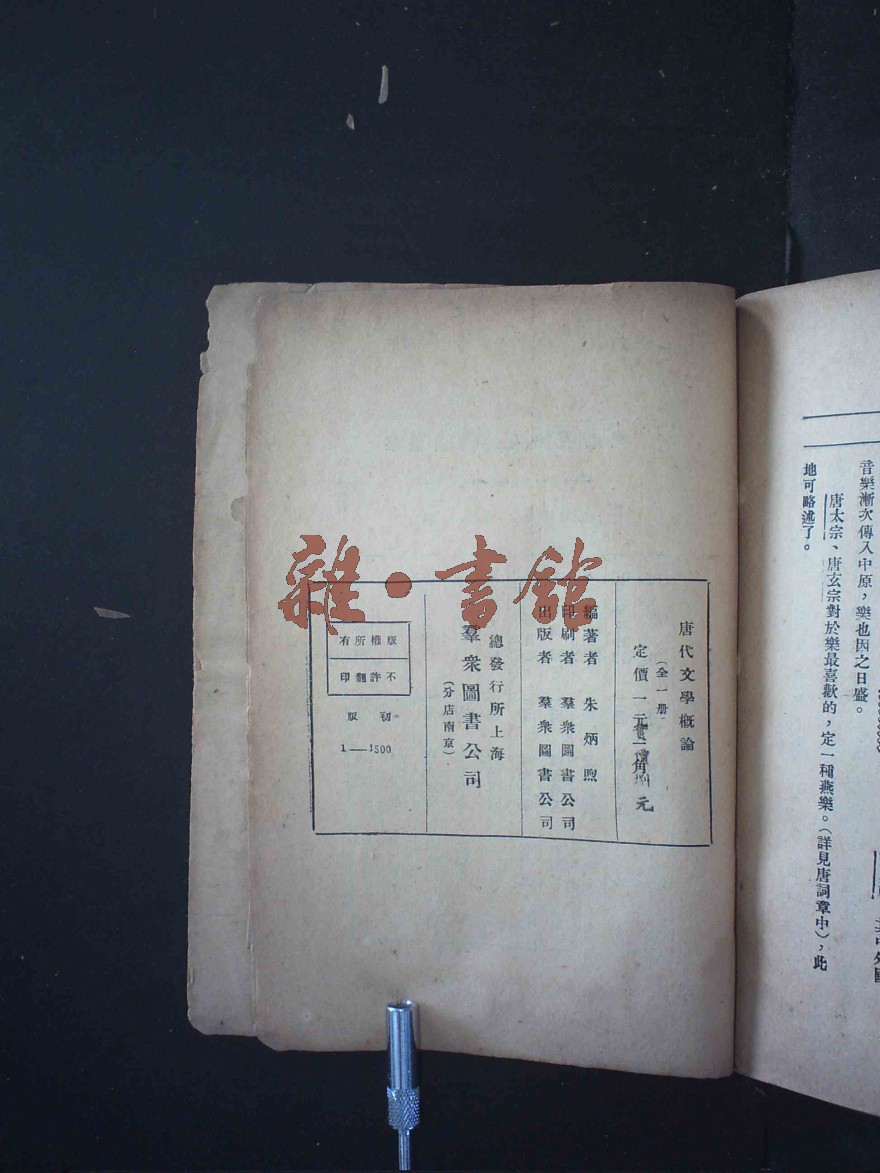 音樂漸次傳入中原，樂也因之日盛。
唐太宗、唐玄宗對於樂最喜歡的，定一種燕樂。（詳見唐詞章中），此
地可略述了。
雜·書館
唐代文學概論
（全一册）
定價一元
編著者 朱炳煦
印刷者 羣衆圖書公司
出版者 羣衆圖書公司
總發行所上海
羣衆圖書公司
（分店南京）
版權所有
不許翻印
初版
1—1500